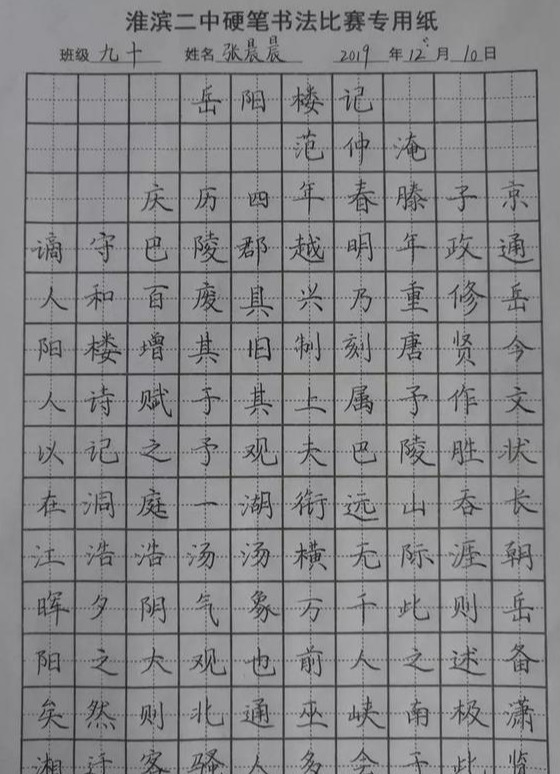 淮滨二中硬笔书法比赛专用纸
班级 九十 姓名 张晨晨 2019 年 12 月 10 日
岳阳楼记
范仲淹
庆历四年春滕子京
谪守巴陵郡越明年政通
人和百废具兴乃重修岳
阳楼增其旧制刻唐贤今
人诗赋于其上属予作文
以记之予观夫巴陵胜状
在洞庭一湖衔远山吞长
江浩浩汤汤横无际涯朝
晖夕阴气象万千此则岳
阳之大观也前人之述备
矣然则北通巫峡南极潇
湘迁客骚人多会于此览